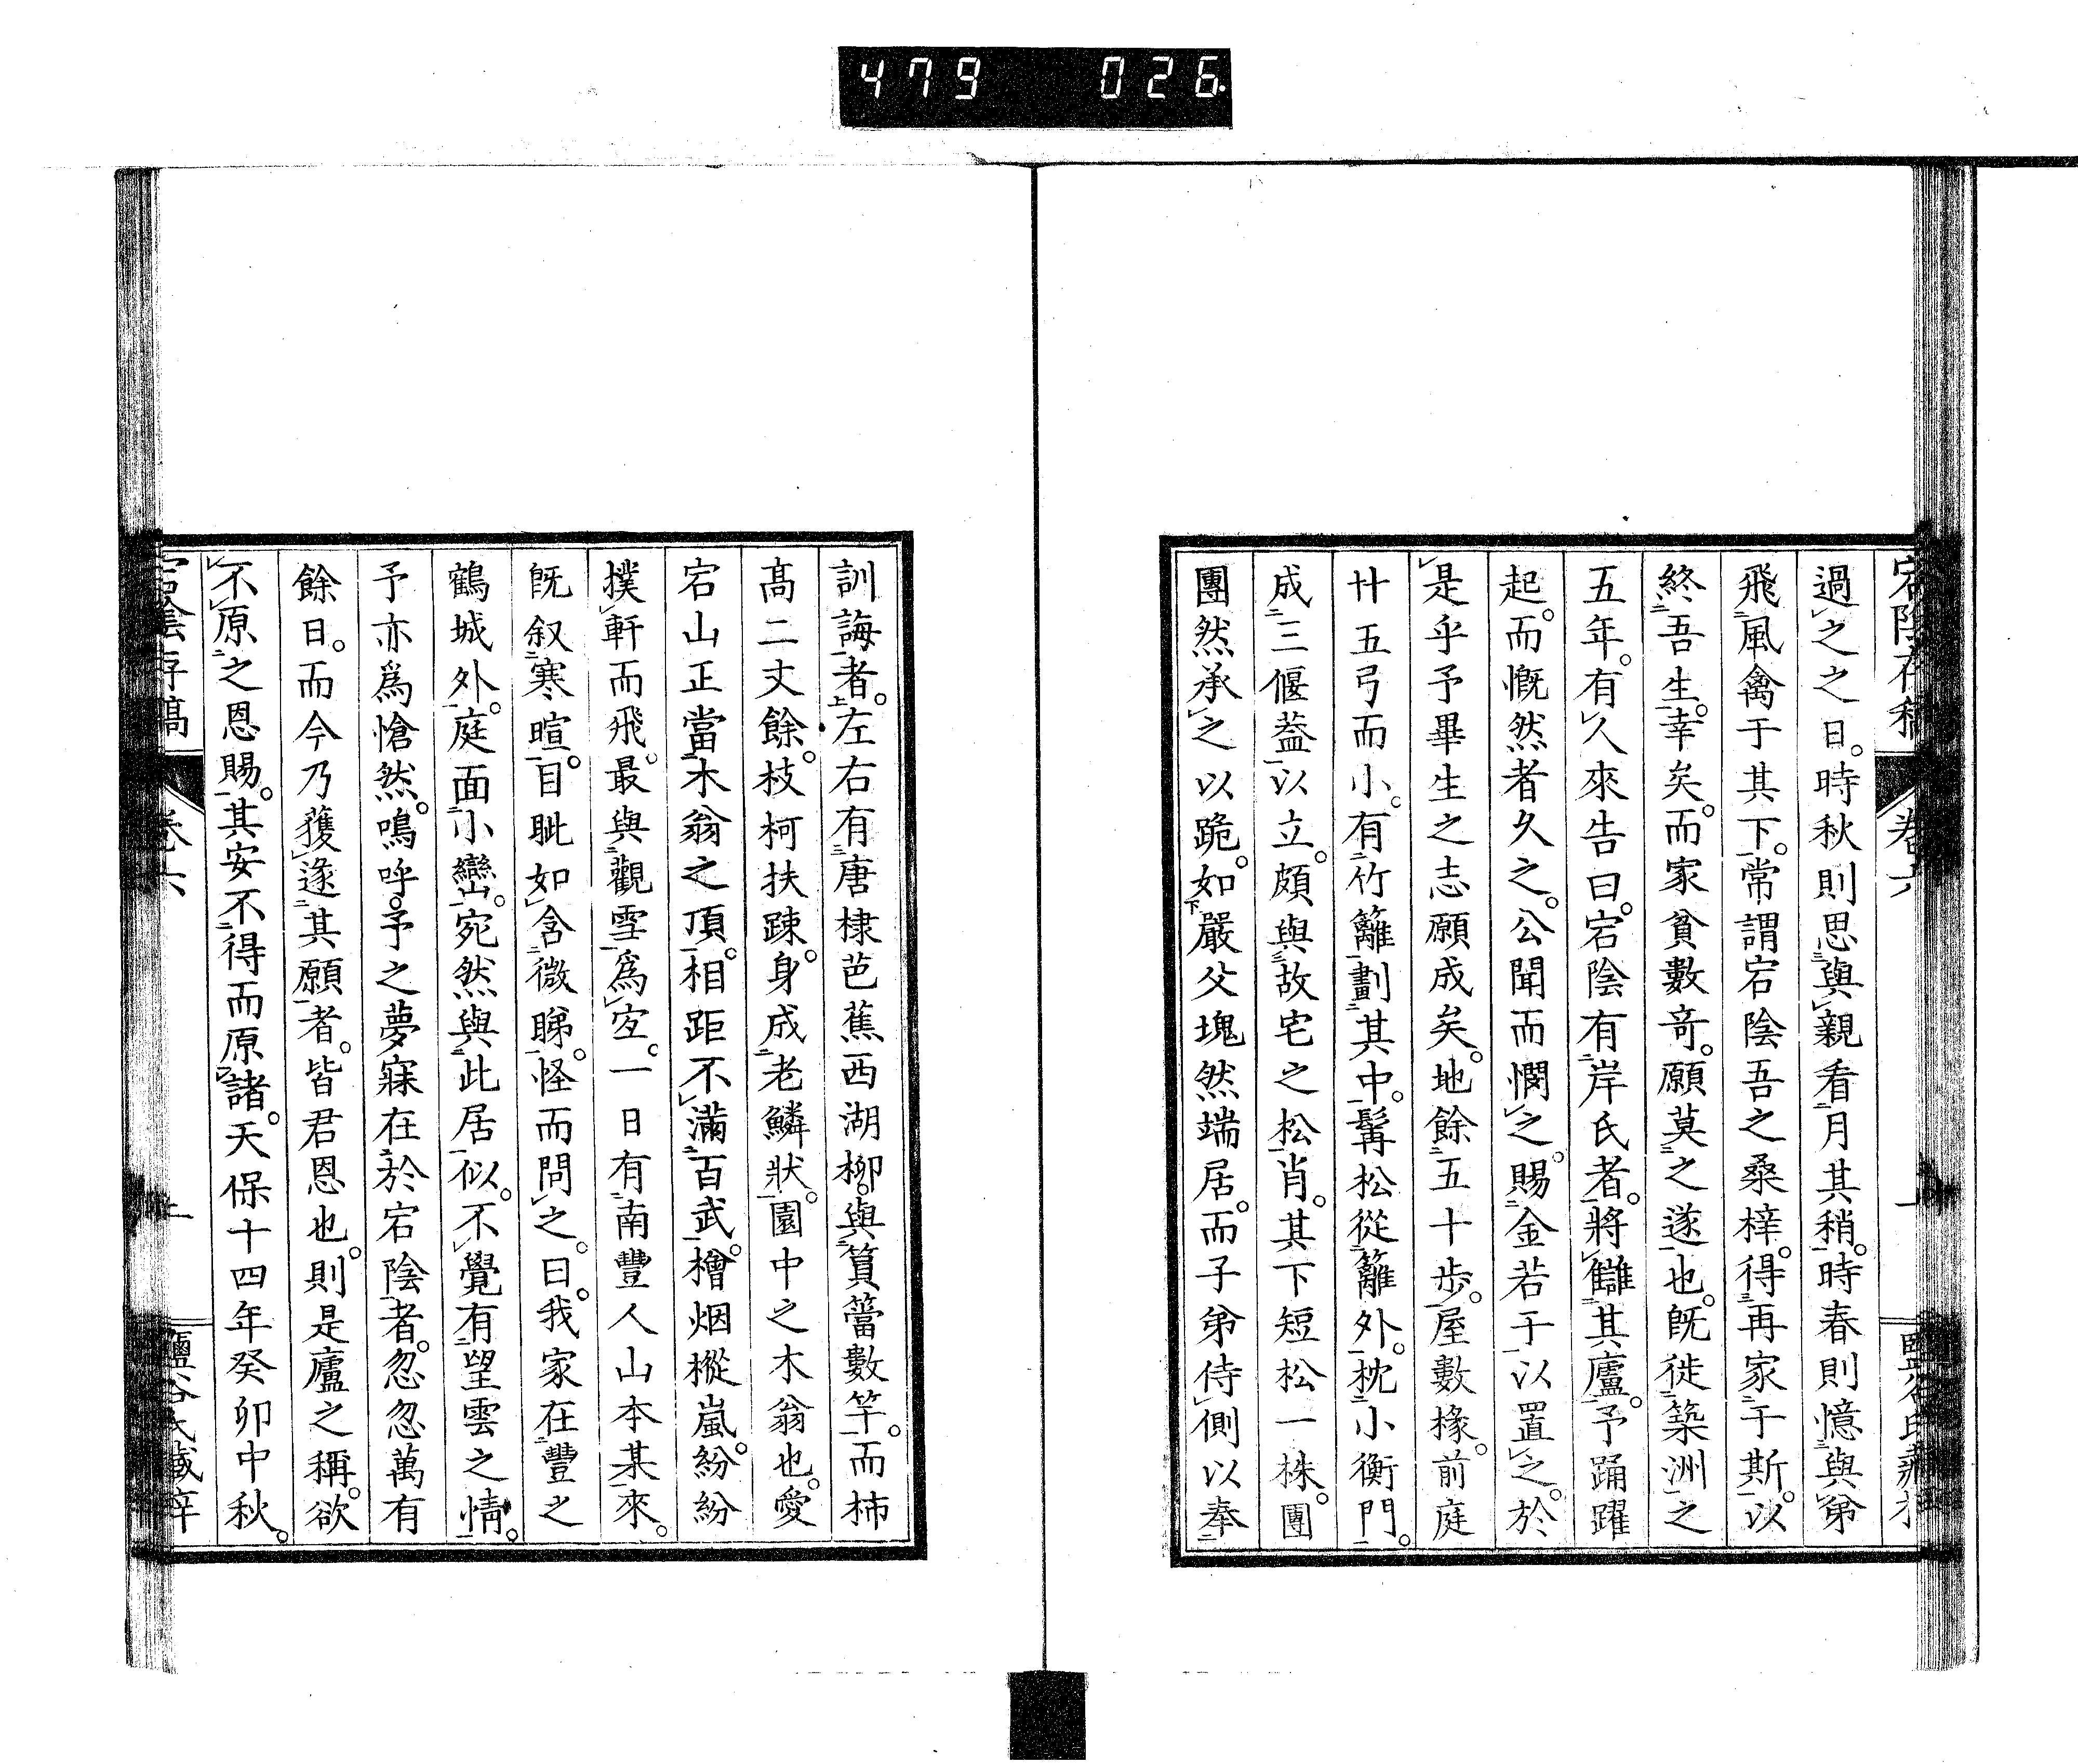 479 026
宕陰存稿 卷六
過之之日。時秋則思與親看月其稍。時春則憶與弟
飛風禽于其下。常謂宕陰吾之桑梓。得再家于斯。以
終吾生。幸矣。而家貧數奇。願莫之遂也。既徙築洲之
五年。有久來告曰。宕陰有岸氏者。將讎其廬。予踊躍
起。而慨然者久之。公聞而憫之。賜金若干以置之。於
是乎予畢生之志願成矣。地餘五十步。屋數椽。前庭
廿五弓而小。有竹籬劃其中。髯松從籬外。枕小衡門。
成三偃葢以立。頗與故宅之松肖。其下短松一株。團
團然承之以跪。如嚴父塊然端居。而子弟侍側以奉
訓誨者。左右有唐棣芭蕉西湖柳。與篔簹數竿。而柿
髙二丈餘。枝柯扶踈。身成老鱗狀。園中之木翁也。愛
宕山正當木翁之頂。相距不滿百武。檜烟樅嵐。紛紛
撲軒而飛。最與觀雪爲宜。一日有南豐人山本某來。
既叙寒暄。目眦如含微睇。怪而問之。曰。我家在豐之
鶴城外。庭面小巒。宛然與此居似。不覺有望雲之情。
予亦爲愴然。嗚呼。予之夢寐在於宕陰者。忽忽萬有
餘日。而今乃獲遂其願者。皆君恩也。則是廬之稱。欲
不原之恩賜。其安不得而原諸。天保十四年癸卯中秋。
宕陰存稿 卷六 二 鹽谷氏藏梓